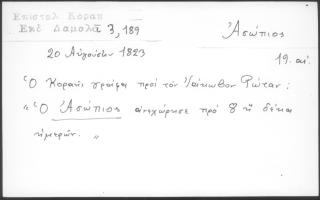 Ἐπιστολ Κοραῆ
Ἐκδ Δαμαλᾶ 3,189
Ἀσώπιος
20 Αὐγούστου 1823
19. αἰ.
Ὁ Κοραῆς γράφει πρὸς τὸν Ἰάκωβον Ρώταν :
"Ὁ Ἀσώπιος ἀνεχώρησε πρὸ 8 ἢ δέκα
ἡμερῶν. "